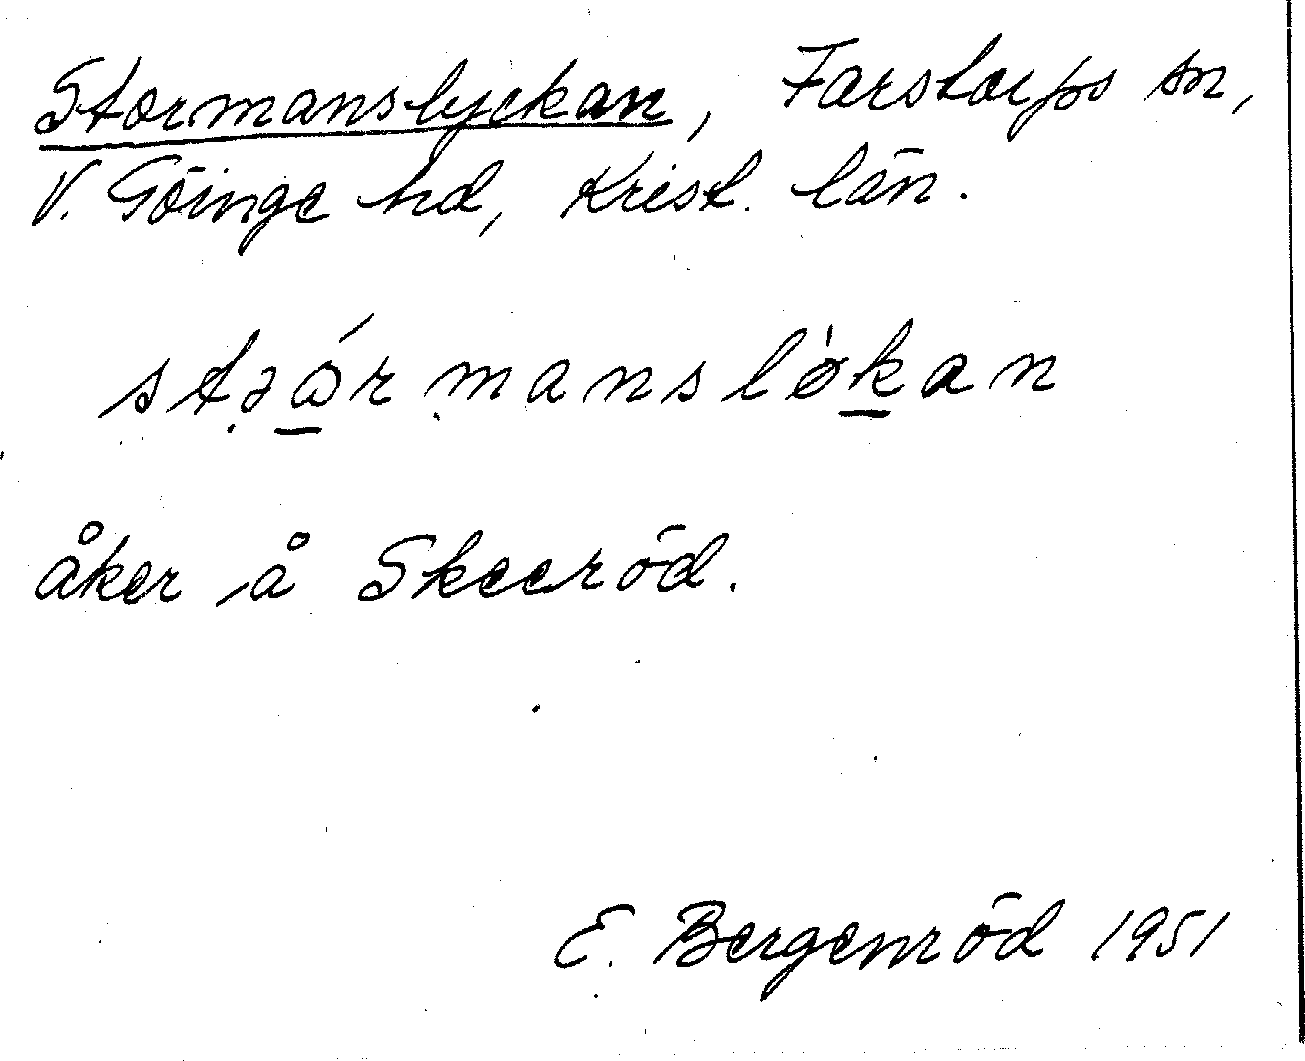 Stormanslyckan, Farstorps sn,
V. Göinge hd, Krist. län.
stɔώ̲rmanslø̀k̲an
åker å Skeeröd.
E. Bergenröd 1951